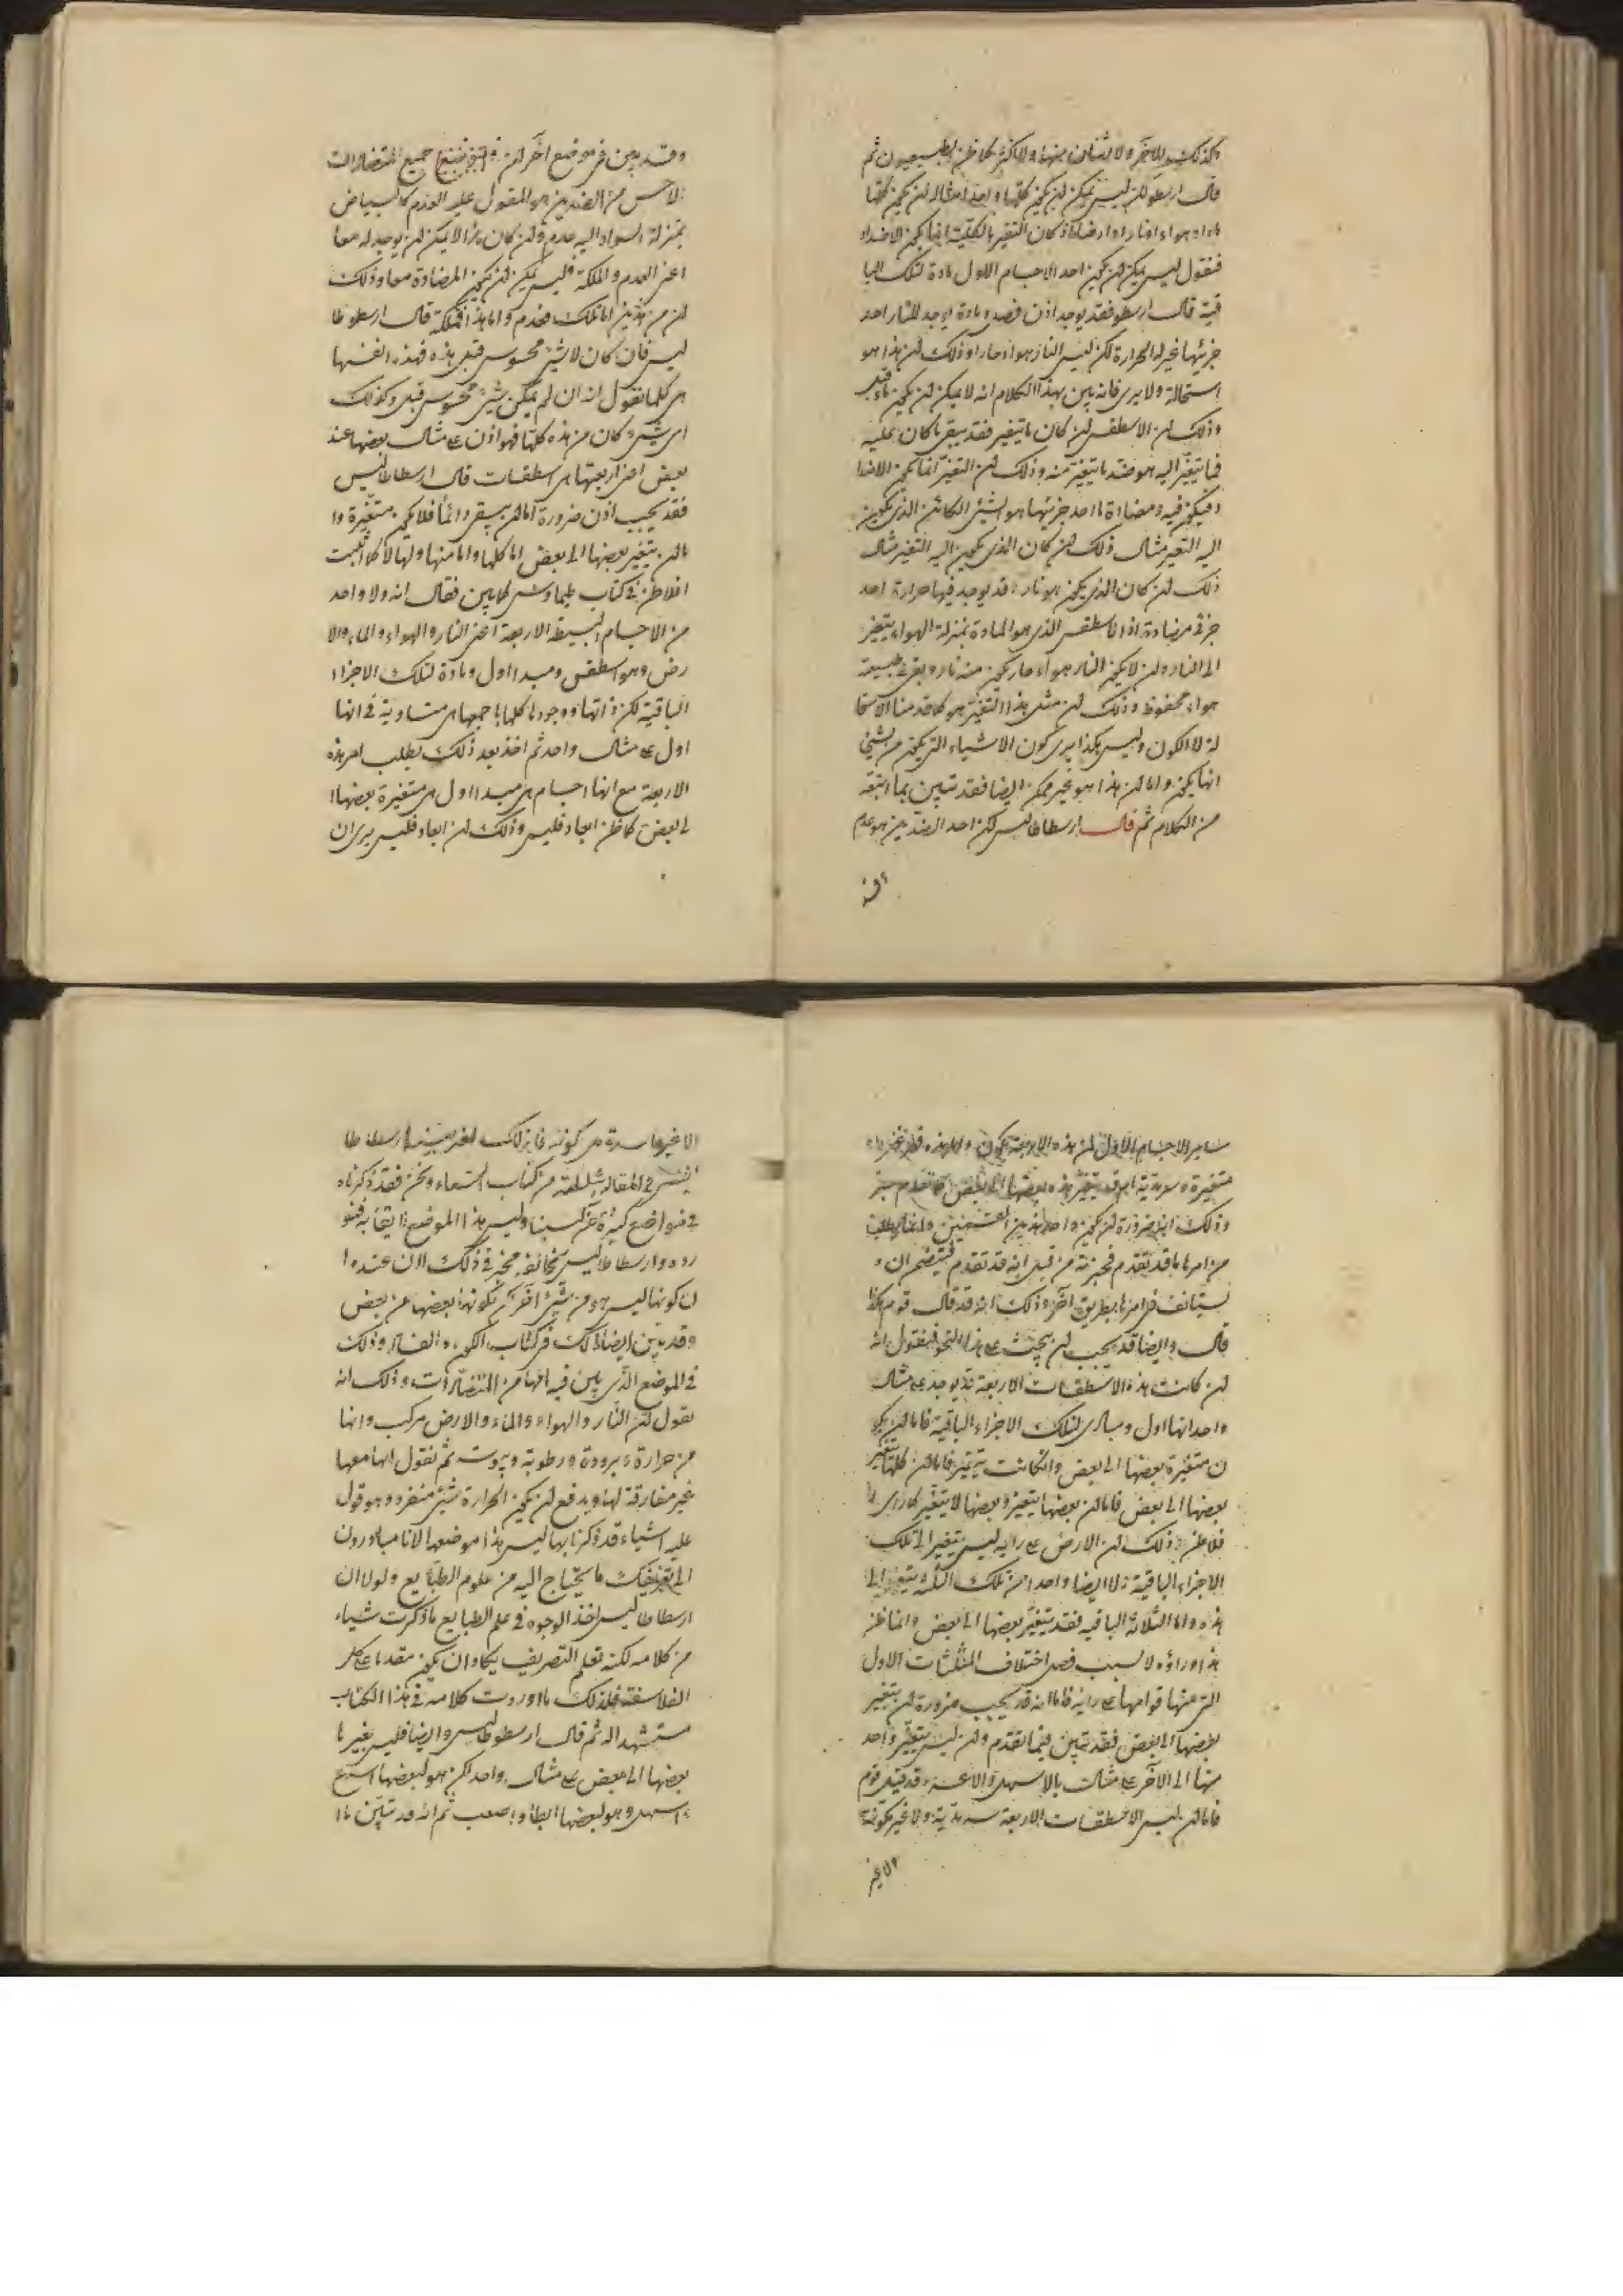 وكذلك للآخر ولا لشأن منها ولا اكثر كما ظن الطبيعيون ثم
قال ارسطو لكن ليس يمكن ان يكون كلها واحدا مثال ان يكون كلها
ماء او هواء او نارا او ارضا اذ كان التغير بالكلية انما يكون الاضداد
فنقول ليس يمكن ان يكون احد الاجسام الاول مادة لتلك البا
قية قال ارسطو فقد يوجد اذن فصد ومادة يوجد للنار احد
جزئيها غير الحرارة لكن ليس النار هواء حارا وذلك ان هذا هو
استحالة ولا يرى فانه يبين بهذا الكلام انه لا يمكن ان يكون ماء قبل
وذلك ان الاسطقس ان كان ما يتغير فقد يبقى ما كان عليه
فما يتغير اليه هو ضد ما يتغير منه وذلك ان التغير انما يكون الاضدا
د فيكون فيه ومضادة ما احد جزئيها هو الشيء الكائن الذي يكون
اليه التغير مثال ذلك ان كان الذي يكون اليه التغير مثال
ذلك ان كان الذي يكون هو نار قد يوجد فيها حرارة احد
جزئي مضادة اذا الاسطقس الذي هو المادة بمنزلة الهواء يتغير
الى النار وان لا يكون النار هواء حار يكون منه نار ويبقى في طبيعته
هواء محفوظ وذلك ان مثل هذا التغير هو كما قدمنا الاستحا
لة لا الكون وليس هكذا يرى كون الاشياء التي يكون من شيء
انها يكون واما ان هذا هو غير ممكن ايضا فقد تبين بما اتبعه
من الكلام ثم قال ارسطاطاليس لكن احد الضدين هو عدم
وقد
وقد بين في موضع آخر ان جميع المتضادات
الاخس من الضدين هو المقول عليه العدم كالبياض
بمنزلة السواد اليه عدم وان كان هذا لا يمكن ان يوجد له معا
اعني العدم والملكة فليس يمكن ان يكون المضادة معا وذلك
ان من هذين اما تلك فعدم واما هذا فملكة قال ارسطوطا
ليس فان كان لا شيء محسوس قبل هذه فهذه انفسها
هي كلها نقول انه ان لم يكن شيء محسوس قبل وكذلك
اي شيء كان من هذه كلها فهو اذن على مثال بعضها عند
بعض اعني اربعتها هي اسطقسات قال ارسطاطاليس
فقد يجب اذن ضرورة اما ان يبقى دائما فلا يكون متغيرة وا
ما ان يتغير بعضها الى بعض اما كلها واما منها ولها لا كما اثبت
افلاطن في كتاب طيماوس لما بين فقال انه ولا واحد
من الاجسام البسيطة الاربعة اعني النار والهواء والماء والا
رض هو اسطقس ومبدا اول ومادة لتلك الاجزاء
الباقية لكن ذاتها ووجودها كلها باجمعها هي متساوية في انها
اول على مثال واحد ثم اخذ بعد ذلك يطلب امر هذه
الاربعة مع انها اجسام هي مبدا اول هي متغيرة بعضها ا
لى بعض كما ظن ابعاد قليس وذلك ان ابعاد قليس يرى ان
سائر الاجسام الاول من هذه الاربعة يكون واما هذه
متغيرة وسرمدية ام قد يتغير هذه بعضها الى بعض كما تقدم
وذلك انه ضرورة ان يكون واحد هذين القسمين وانما يطلب
من امرها ما قد تقدم فخبر عنه من قبل انه قد تقدم ليتضح ان
يستأنف في امرها بطريق آخر وذلك انه قد قال قوم هكذا
قال وايضا قد يجب ان يبحث على هذا النحو فيقول انه
ان كانت هذه الاسطقسات الاربعة قد يوجد على مثال
واحد انها اول ومبادي لتلك الاجزاء الباقية فاما ان يكو
ن متغيرة بعضها الى بعض وان كانت يتغير فاما ان كلها يتغير
بعضها الى بعض فاما ان بعضها يتغير وبعضها لا يتغير كما رأى ا
فلاطن وذلك ان الارض على رايه ليس يتغير الى تلك
الاجزاء الباقية ولا ايضا واحدا من تلك الثلثة يتغير الى
هذه واما الثلاثة الباقيه فقد يتغير بعضها الى بعض وانما ظن
هذا وراؤه لا بسبب فصل اختلاف المثلثات الاول
التي عنها قوامها على رايه فاما انه قد يجب ضرورة ان يتغير
بعضها الى بعض فقد تبين فيما تقدم وان ليس يتغير واحد
منها الى الآخر على مثال بالاسهل والاعسر وقد قيل قوم
فاما ان ليس الاسطقسات الاربعة سرمدية ولا غير مكونة
الا غير
الا غير فاسدة هي كونه فان ذلك امر بينه ارسطاطا
ليس في المقالة الثالثة من كتاب السماء ونحن فقد ذكرناه
في مواضع كثيرة آخر كسبنا وليس هذا الموضع لايقا به فنو
رده وارسطاطاليس مخالفه مخبر في ذلك الان عنده ا
ن كونها ليس هو من شيء آخر بكونها بعضها عن بعض
وقد بين ايضا ذلك في كتاب الكون والفساد وذلك
في الموضع الذي يبين فيه انها من المتضادات وذلك انه
يقول ان النار والهواء والماء والارض مركب وانها
من حرارة وبرودة ورطوبة ويبوسة ثم نقول انها معها
غير مفارقة لها ويدفع ان يكون الحرارة شيء منفرد وهو قول
عليه اشياء قد ذكرناها ليس هذا موضعها الا انا مبادرون
الى تعريفك ما يحتاج اليه من علوم الطبايع ولولا ان
ارسطاطاليس اخذ الوجوه في علم الطبايع ما ذكرت شياء
من كلامه لكنه تعلم التصريف يكاد ان يكون مقدما على كل
الفلاسفة فلذلك ما اوردت كلامه في هذا الكتاب
مستشهدا له ثم قال ارسطوطاليس وايضا فليس بغير ما
بعضها الى بعض على مثال واحد لكن هو لبعضها اسرع
واسهل وهو لبعضها ابطأ واصعب ثم انه قد تبين ما ا